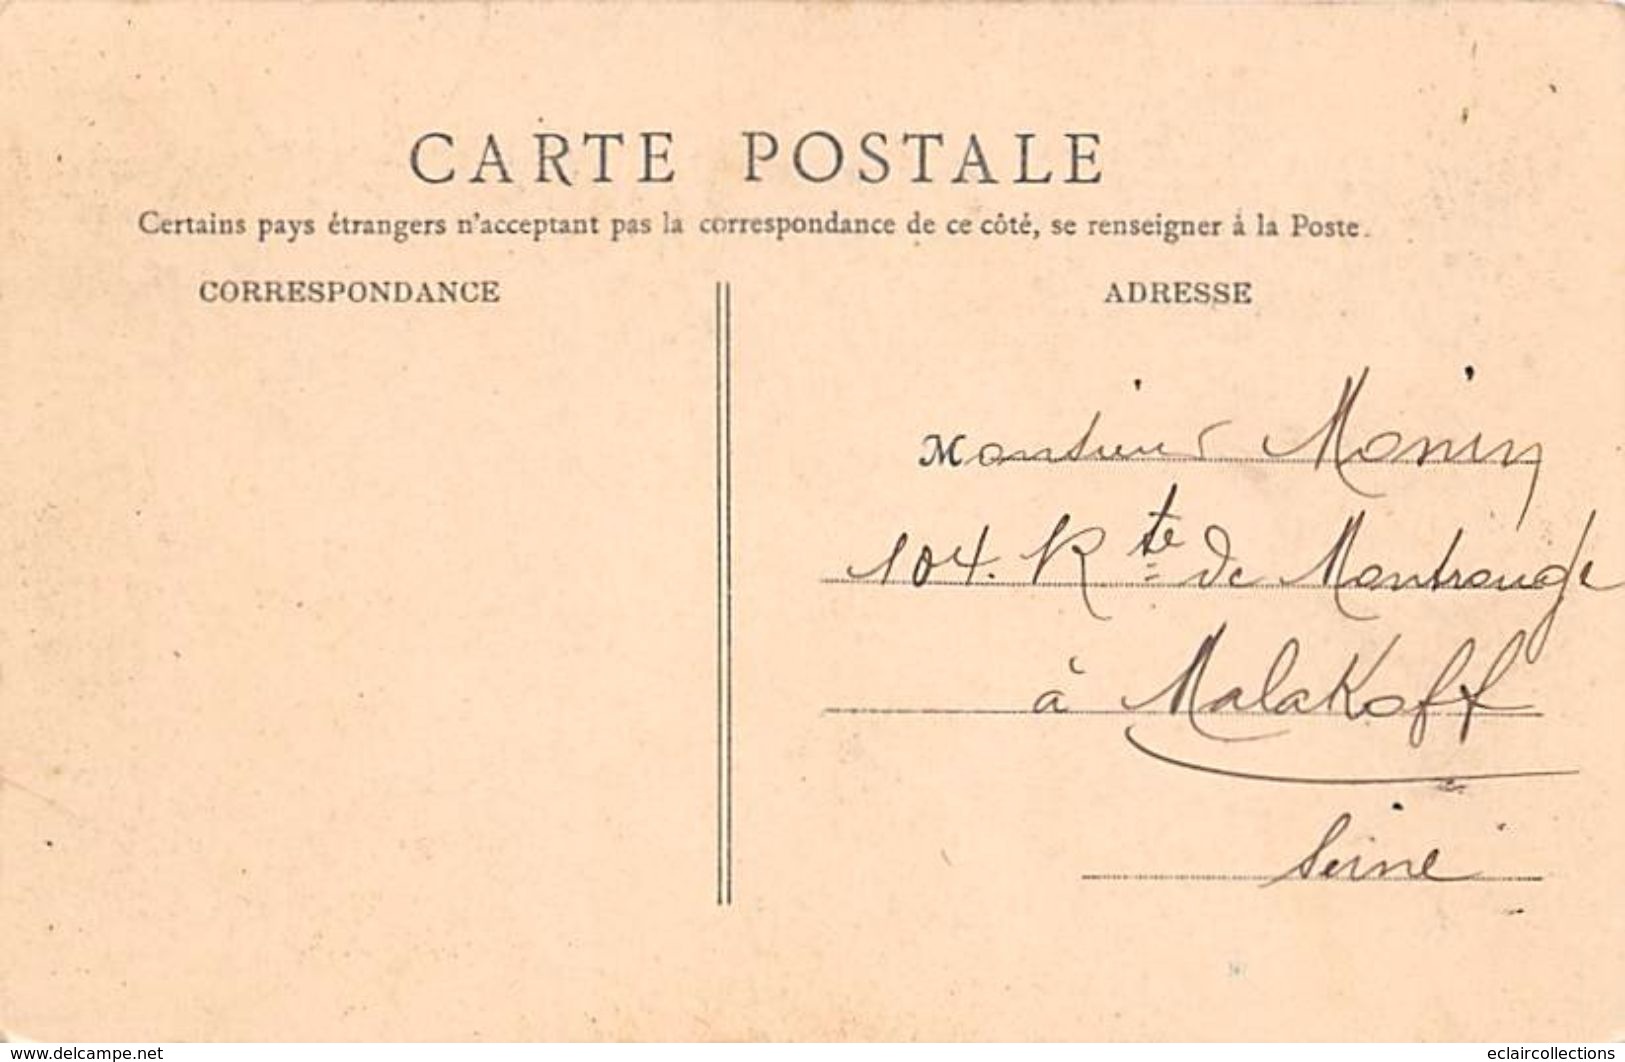 CARTE POSTALE
Certains pays étrangers n'acceptant pas la correspondance de ce côté, se renseigner à la Poste.
CORRESPONDANCE
ADRESSE
Monsieur Monin
104. Rte de Montrouge
à Malakoff
Seine
www.delcampe.net
eclaircollections